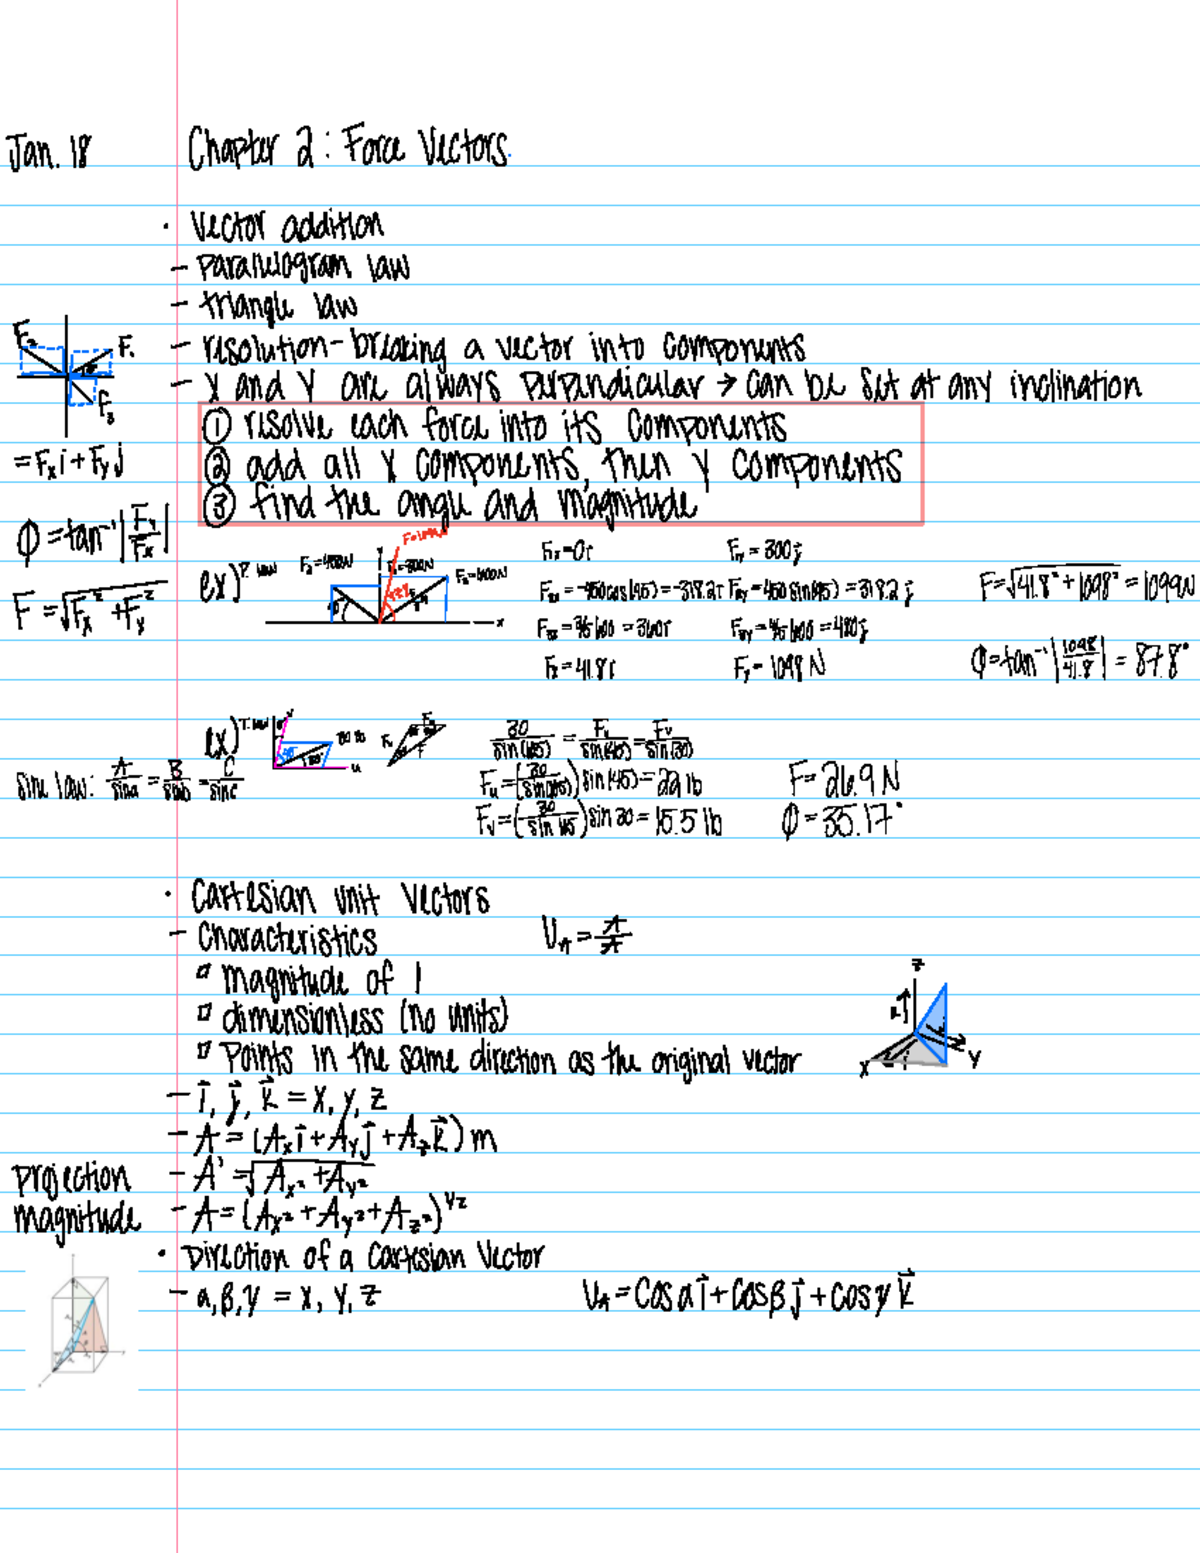 Jan. 18
Chapter 2: Force Vectors.
· Vector addition
- parallelogram law
- triangle law
F₂
F₁
F₃
- resolution - breaking a vector into components
- X and Y are always perpendicular → can be set at any inclination
① resolve each force into its components
② add all X components, then Y components
③ find the angle and magnitude
= Fₓi + Fᵧj
Φ = tan⁻¹|Fᵧ/Fₓ|
F = √Fₓ² + Fᵧ²
ex)
F₁ₓ = 0i F₁ᵧ = 300j
F₂ₓ = -450cos(45) = -318.2i F₂ᵧ = 450 sin(45) = 318.2j
F₃ₓ = 3/5 600 = 360i F₃ᵧ = 4/5 600 = 480j
Fₓ = 41.8i Fᵧ = 1098 N
F = √41.8² + 1098² = 1099N
Φ = tan⁻¹|1098/41.8| = 87.8°
ex)
30 lb
30/sin(105) = Fᵤ/sin(45) = Fᵥ/sin(30)
Fᵤ = (30/sin(105)) sin(45) = 22 lb
Fᵥ = (30/sin 105) sin 30 = 15.5 lb
F = 26.9 N
Φ = 35.17°
sine law: A/sin a = B/sin b = C/sin c
· Cartesian unit Vectors
- Characteristics
U_A = A/A
▫ magnitude of 1
▫ dimensionless (no units)
▫ Points in the same direction as the original vector
z
x
y
- i⃗, j⃗, k⃗ = X, Y, Z
- A = (Aₓi⃗ + Aᵧj⃗ + A_z k⃗) m
projection - A' = √Aₓ² + Aᵧ²
magnitude - A = (Aₓ² + Aᵧ² + A_z²)^1/2
· Direction of a Cartesian Vector
- α, β, γ = X, Y, Z
U_A = Cos α i⃗ + Cos β j⃗ + Cos γ k⃗